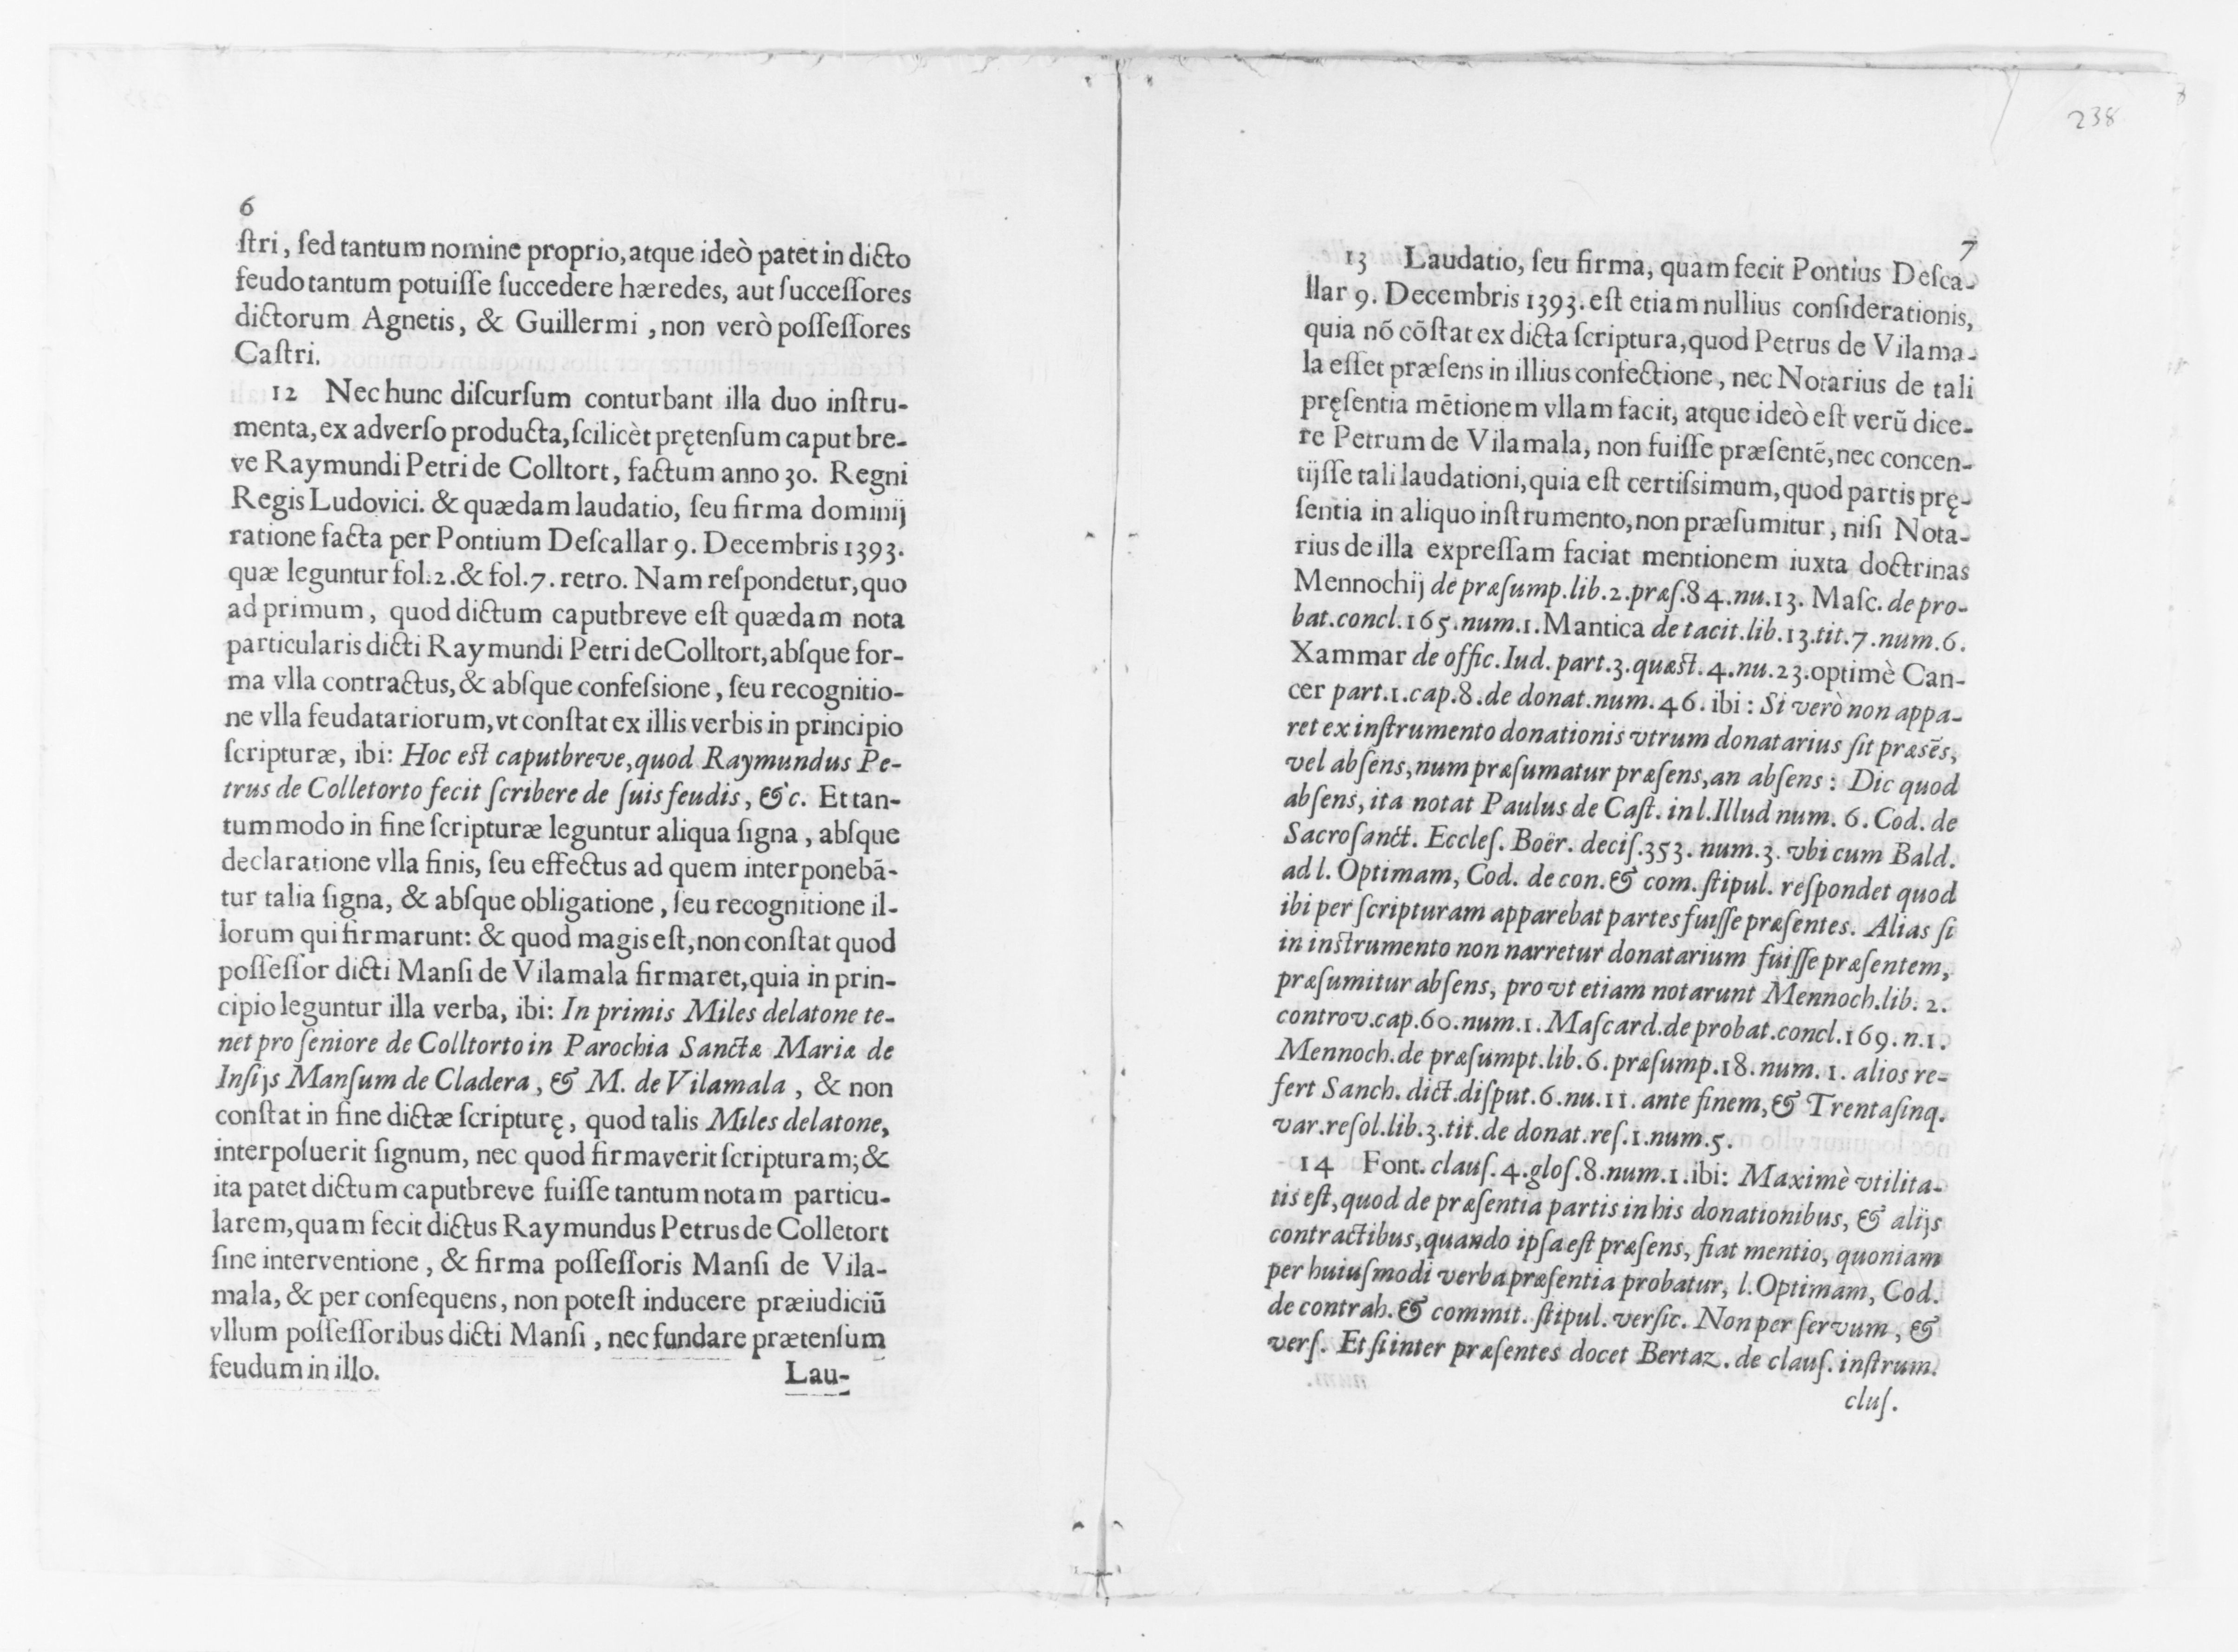 6
ſtri, ſed tantum nomine proprio, atque ideò patet in dicto
feudo tantum potuiſſe ſuccedere hæredes, aut ſucceſſores
dictorum Agnetis, & Guillermi, non verò poſſeſſores
Caſtri.
12 Nec hunc diſcurſum conturbant illa duo inſtru-
menta, ex adverſo producta, ſcilicèt prętenſum caput bre-
ve Raymundi Petri de Colltort, factum anno 30. Regni
Regis Ludovici. & quædam laudatio, ſeu firma dominij
ratione facta per Pontium Deſcallar 9. Decembris 1393.
quæ leguntur fol.2. & fol.7. retro. Nam reſpondetur, quo
ad primum, quod dictum caputbreve eſt quædam nota
particularis dicti Raymundi Petri de Colltort, abſque for-
ma vlla contractus, & abſque confeſsione, ſeu recognitio-
ne vlla feudatariorum, vt conſtat ex illis verbis in principio
ſcripturæ, ibi: Hoc eſt caputbreve, quod Raymundus Pe-
trus de Colletorto fecit ſcribere de ſuis feudis, &c. Et tan-
tummodo in fine ſcripturæ leguntur aliqua ſigna, abſque
declaratione vlla finis, ſeu effectus ad quem interponebā-
tur talia ſigna, & abſque obligatione, ſeu recognitione il-
lorum qui firmarunt: & quod magis eſt, non conſtat quod
poſſeſſor dicti Manſi de Vilamala firmaret, quia in prin-
cipio leguntur illa verba, ibi: In primis Miles delatone te-
net pro ſeniore de Colltorto in Parochia Sanctæ Mariæ de
Inſijs Manſum de Cladera, & M. de Vilamala, & non
conſtat in fine dictæ ſcripturę, quod talis Miles delatone,
interpoſuerit ſignum, nec quod firmaverit ſcripturam; &
ita patet dictum caputbreve fuiſſe tantum notam particu-
larem, quam fecit dictus Raymundus Petrus de Colletort
ſine interventione, & firma poſſeſſoris Manſi de Vila-
mala, & per conſequens, non poteſt inducere præiudiciū
vllum poſſeſſoribus dicti Manſi, nec fundare prætenſum
feudum in illo.
Lau-
238
7
13 Laudatio, ſeu firma, quam fecit Pontius Deſca-
llar 9. Decembris 1393. eſt etiam nullius conſiderationis,
quia nō cōſtat ex dicta ſcriptura, quod Petrus de Vilama-
la eſſet præſens in illius confectione, nec Notarius de tali
pręſentia mētionem vllam facit, atque ideò eſt verū dice-
re Petrum de Vilamala, non fuiſſe præſentē, nec concen-
tijſſe tali laudationi, quia eſt certiſsimum, quod partis prę-
ſentia in aliquo inſtrumento, non præſumitur, niſi Nota-
rius de illa expreſſam faciat mentionem iuxta doctrinas
Mennochij de præſump.lib.2.præſ.84.nu.13. Maſc. de pro-
bat.concl.165.num.1. Mantica de tacit.lib.13.tit.7.num.6.
Xammar de offic.Iud.part.3.quæſt.4.nu.23. optimè Can-
cer part.1.cap.8.de donat.num.46. ibi: Si verò non appa-
ret ex inſtrumento donationis vtrum donatarius ſit præsēs,
vel abſens, num præſumatur præſens, an abſens: Dic quod
abſens, ita notat Paulus de Caſt. in l. Illud num. 6. Cod. de
Sacroſanct. Eccleſ. Boër. deciſ.353. num.3. vbi cum Bald.
ad l. Optimam, Cod. de con. & com. ſtipul. reſpondet quod
ibi per ſcripturam apparebat partes fuiſſe præſentes. Alias ſi
in inſtrumento non narretur donatarium fuiſſe præſentem,
præſumitur abſens, pro vt etiam notarunt Mennoch.lib. 2.
controv.cap.60.num.1. Maſcard.de probat.concl.169.n.1.
Mennoch.de præſumpt.lib.6.præſump.18.num.1. alios re-
fert Sanch. dict.diſput.6.nu.11. ante finem, & Trentaſinq.
var.reſol.lib.3.tit.de donat.reſ.1.num.5.
14 Font. clauſ.4.gloſ.8.num.1. ibi: Maximè vtilita-
tis eſt, quod de præſentia partis in his donationibus, & alijs
contractibus, quando ipſa eſt præſens, fiat mentio, quoniam
per huiuſmodi verba præſentia probatur, l. Optimam, Cod.
de contrah. & commit. ſtipul. verſic. Non per ſervum, &
verſ. Et ſi inter præſentes docet Bertaz. de clauſ. inſtrum.
cluſ.